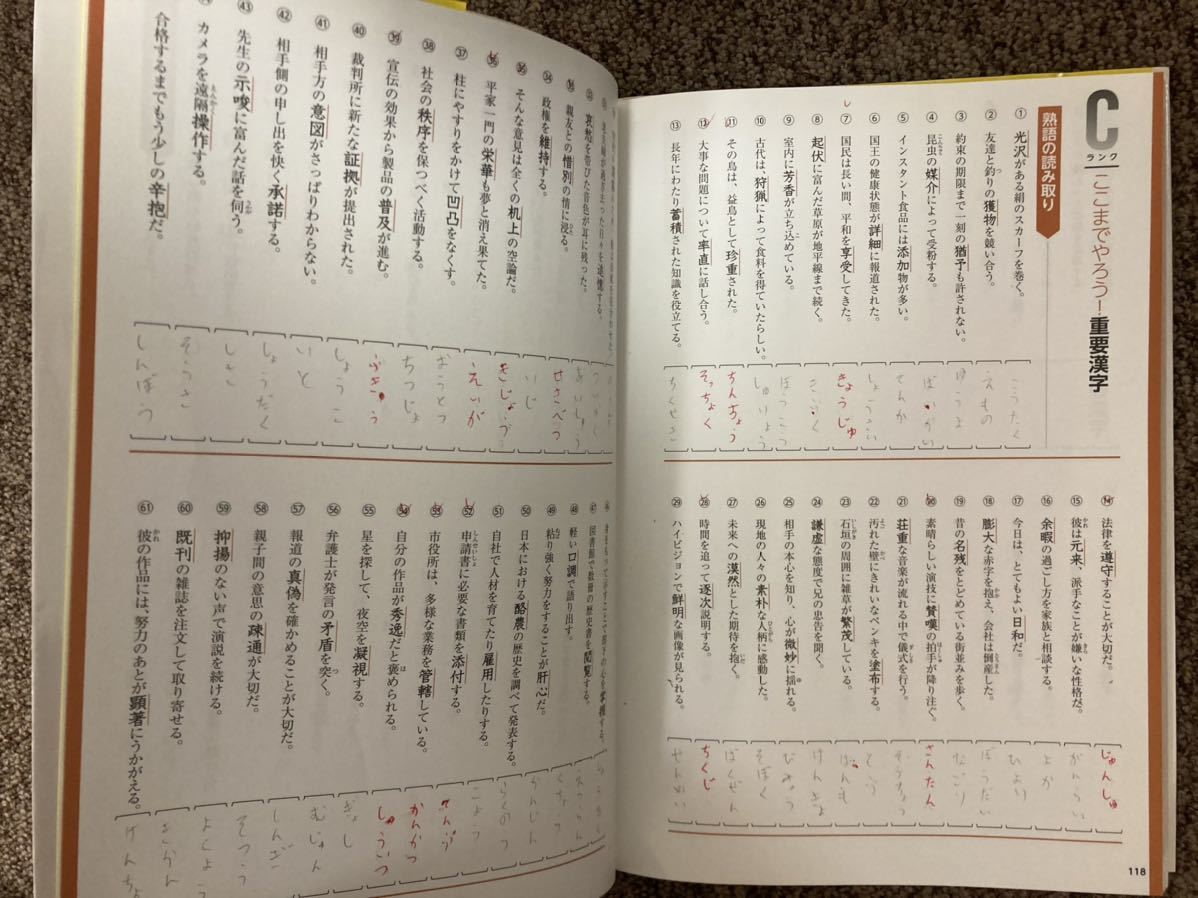 Cランク ここまでやろう!重要漢字
熟語の読み取り
① 光沢がある絹のスカーフを巻く。 こうたく
② 友達と釣りの獲物を競い合う。 えもの
③ 約束の期限まで一刻の猶予も許されない。 ゆうよ
④ 昆虫の媒介によって受粉する。 ばいかい
⑤ インスタント食品には添加物が多い。 てんか
⑥ 国王の健康状態が詳細に報道された。 しょうさい
⑦ 国民は長い間、平和を享受してきた。 きょうじゅ
⑧ 起伏に富んだ草原が地平線まで続く。 きふく
⑨ 室内に芳香が立ち込めている。 ほうこう
⑩ 古代は、狩猟によって食料を得ていたらしい。 しゅりょう
⑪ その鳥は、益鳥として珍重された。 ちんちょう
⑫ 大事な問題について率直に話し合う。 そっちょく
⑬ 長年にわたり蓄積された知識を役立てる。 ちくせき
⑭ 法律を遵守することが大切だ。 じゅんしゅ
⑮ 彼は元来、派手なことが嫌いな性格だ。 がんらい
⑯ 余暇の過ごし方を家族と相談する。 よか
⑰ 今日は、とてもよい日和だ。 ひより
⑱ 膨大な赤字を抱え、会社は倒産した。 ぼうだい
⑲ 昔の名残をとどめている街並みを歩く。 なごり
⑳ 素晴らしい演技に賛嘆の拍手が降り注ぐ。 さんたん
㉑ 荘重な音楽が流れる中で儀式を行う。 そうちょう
㉒ 汚れた壁にきれいなペンキを塗布する。 とふ
㉓ 石垣の周囲に雑草が繁茂している。 はんも
㉔ 謙虚な態度で兄の忠告を聞く。 けんきょ
㉕ 相手の本心を知り、心が微妙に揺れる。 びみょう
㉖ 現地の人々の素朴な人柄に感動した。 そぼく
㉗ 未来への漠然とした期待を抱く。 ばくぜん
㉘ 時間を追って逐次説明する。 ちくじ
㉙ ハイビジョンで鮮明な画像が見られる。 せんめい
118
哀愁を帯びた音色が耳に残った。 あいしゅう
親友との惜別の情に浸る。 せきべつ
㉞ 政権を維持する。 いじ
そんな意見は全くの机上の空論だ。 きじょう
平家一門の栄華も夢と消え果てた。 えいが
㊲ 柱にやすりをかけて凹凸をなくす。 おうとつ
㊳ 社会の秩序を保つべく活動する。 ちつじょ
㊴ 宣伝の効果から製品の普及が進む。 ふきゅう
㊵ 裁判所に新たな証拠が提出された。 しょうこ
㊶ 相手方の意図がさっぱりわからない。 いと
㊷ 相手側の申し出を快く承諾する。 しょうだく
㊸ 先生の示唆に富んだ話を伺う。 しさ
カメラを遠隔操作する。 そうさ
合格するまでもう少しの辛抱だ。 しんぼう
㊼ 図書館で数冊の歴史書を閲覧する。 えつらん
㊽ 軽い口調で語り出す。 くちょう
㊾ 粘り強く努力をすることが肝心だ。 かんじん
㊿ 日本における酪農の歴史を調べて発表する。 らくのう
51 自社で人材を育てたり雇用したりする。 こよう
52 申請書に必要な書類を添付する。 てんぷ
53 市役所は、多様な業務を管轄している。 かんかつ
54 自分の作品が秀逸だと褒められる。 しゅういつ
55 星を探して、夜空を凝視する。 ぎょうし
56 弁護士が発言の矛盾を突く。 むじゅん
57 報道の真偽を確かめることが大切だ。 しんぎ
58 親子間の意思の疎通が大切だ。 そつう
59 抑揚のない声で演説を続ける。 よくよう
60 既刊の雑誌を注文して取り寄せる。 きかん
61 彼の作品には、努力のあとが顕著にうかがえる。 けんちょ